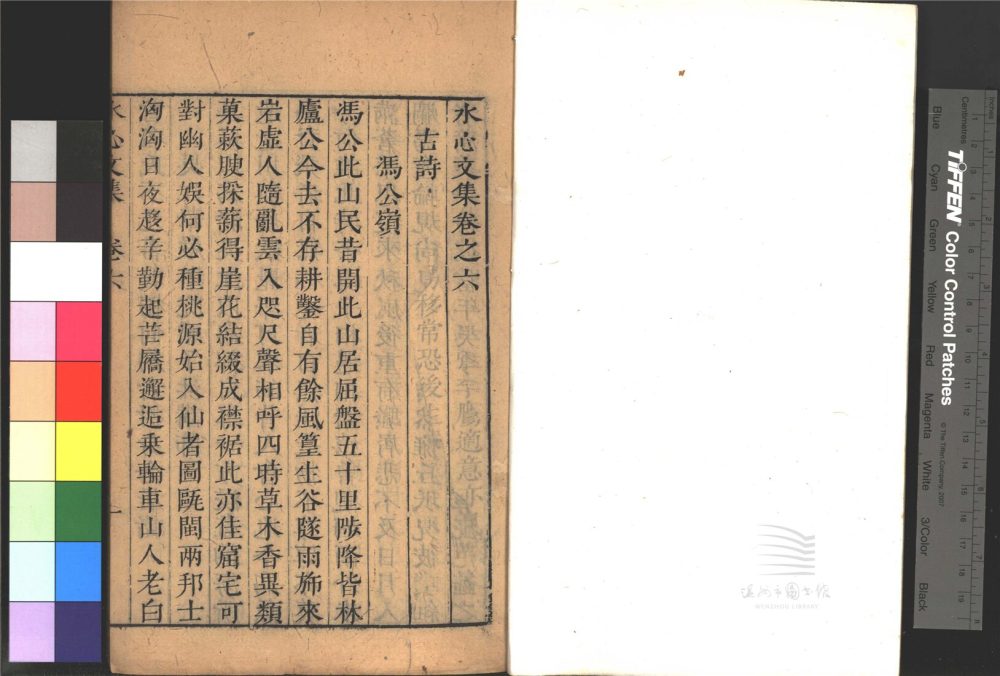 水心文集卷之六
古詩
馮公嶺
馮公此山民昔開此山居屈盤五十里陟降皆林
廬公今去不存耕鑿自有餘風篁生谷隧雨旆來
岩虛人隨亂雲入咫尺聲相呼四時草木香異類
菓蔌腴採薪得崖花結綴成襟裾此亦佳窟宅可
對幽人娛何必種桃源始入仙者圖甌閩兩邦士
洶洶日夜趍辛勤起芒屩邂逅乗輪車山人老白
水心文集 卷六 一
Inches
Centimetres
TIFFEN Color Control Patches
© The Tiffen Company, 2007
Blue Cyan Green Yellow Red Magenta White 3/Color Black
温州市图书馆
WENZHOU LIBRARY